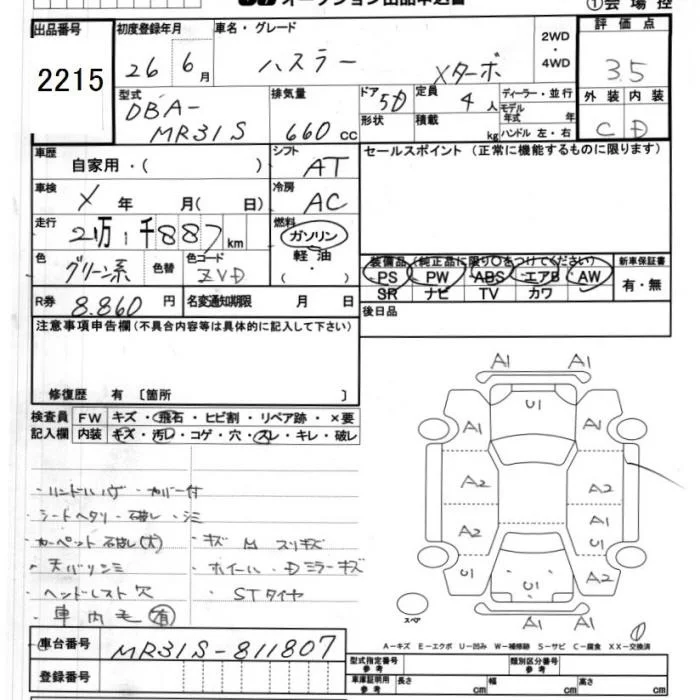 ①会場控
出品番号 初度登録年月 車名・グレード 2WD・4WD 評価点
2215 26 6月 ハスラー Xターボ 3.5
型式 排気量 ドア 定員 ディーラー・並行 外装 内装
DBA- 5D 4人 モデル年式 年 C D
MR31S 660cc 形状 積載 kg ハンドル 左・右
車歴 シフト セールスポイント(正常に機能するものに限ります)
自家用・( ) AT
車検 冷房
X年 月( 日) AC
走行 燃料
2万1千887km ガソリン
色 色替 色コード 軽油・ 装備品(純正品に限り○をつけてください) 新車保証書
グリーン系 ZVD ( ) PS PW ABS エアB AW 有・無
SR ナビ TV カワ
R券 8.860円 名変通知期限 月 日 後日品
注意事項申告欄(不具合内容等は具体的に記入して下さい)
修復歴 有〔箇所 〕
検査員 FW キズ・飛石・ヒビ割・リペア跡・×要
記入欄 内装 キズ・汚レ・コゲ・穴・スレ・キレ・破レ
A1 A1
U1
A1 A1
A2 A2
A2 A1
U1
U1 U1 A2
A1 A1
スペア
・カバー付
・シートヘタリ・破レ・シミ
・カーペット破レ(大) ・キズ M スリキズ
・天バリシミ ・ホイール・Dミラーキズ
・ヘッドレスト穴 ・STタイヤ
・車内毛有
A-キズ E-エクボ U-凹み W-補修跡 S-サビ C-腐食 XX-交換済
車台番号 MR31S-811807 型式指定番号 参考 類別区分番号 参考
登録番号 車庫証明用 参考 長さ cm 幅 cm 高さ cm